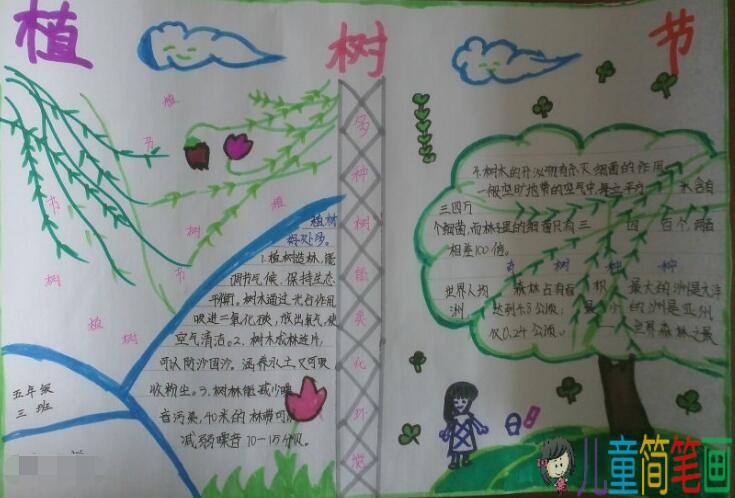 植树节
植树
好处多。
1.植树造林,能
调节气候、保持生态
平衡。树木通过光合作用
吸进二氧化碳,放出氧气,使
空气清洁。2、树木成林连片,
可以防沙固沙。涵养水土,又可吸
收粉尘。3、树林能减少噪
音污染,40米的林带可
减弱噪音10-15分贝。
五年级
三班
多种树能美化环境
不.树木的分泌物有杀灭细菌的作用
一般空旷地带的空气中,每立平方 米含有
三四万
个细菌,而林子里的细菌只有三 四 百个,两者
相差100倍。
树 种 种
世界人均 森林占有面 积 最大的洲是大洋
洲 达到4.8公顷; 最 小 的洲是亚州
仅0.24公顷。 世界森林之最
植
节
节
植
树
树
节
植树
儿童简笔画